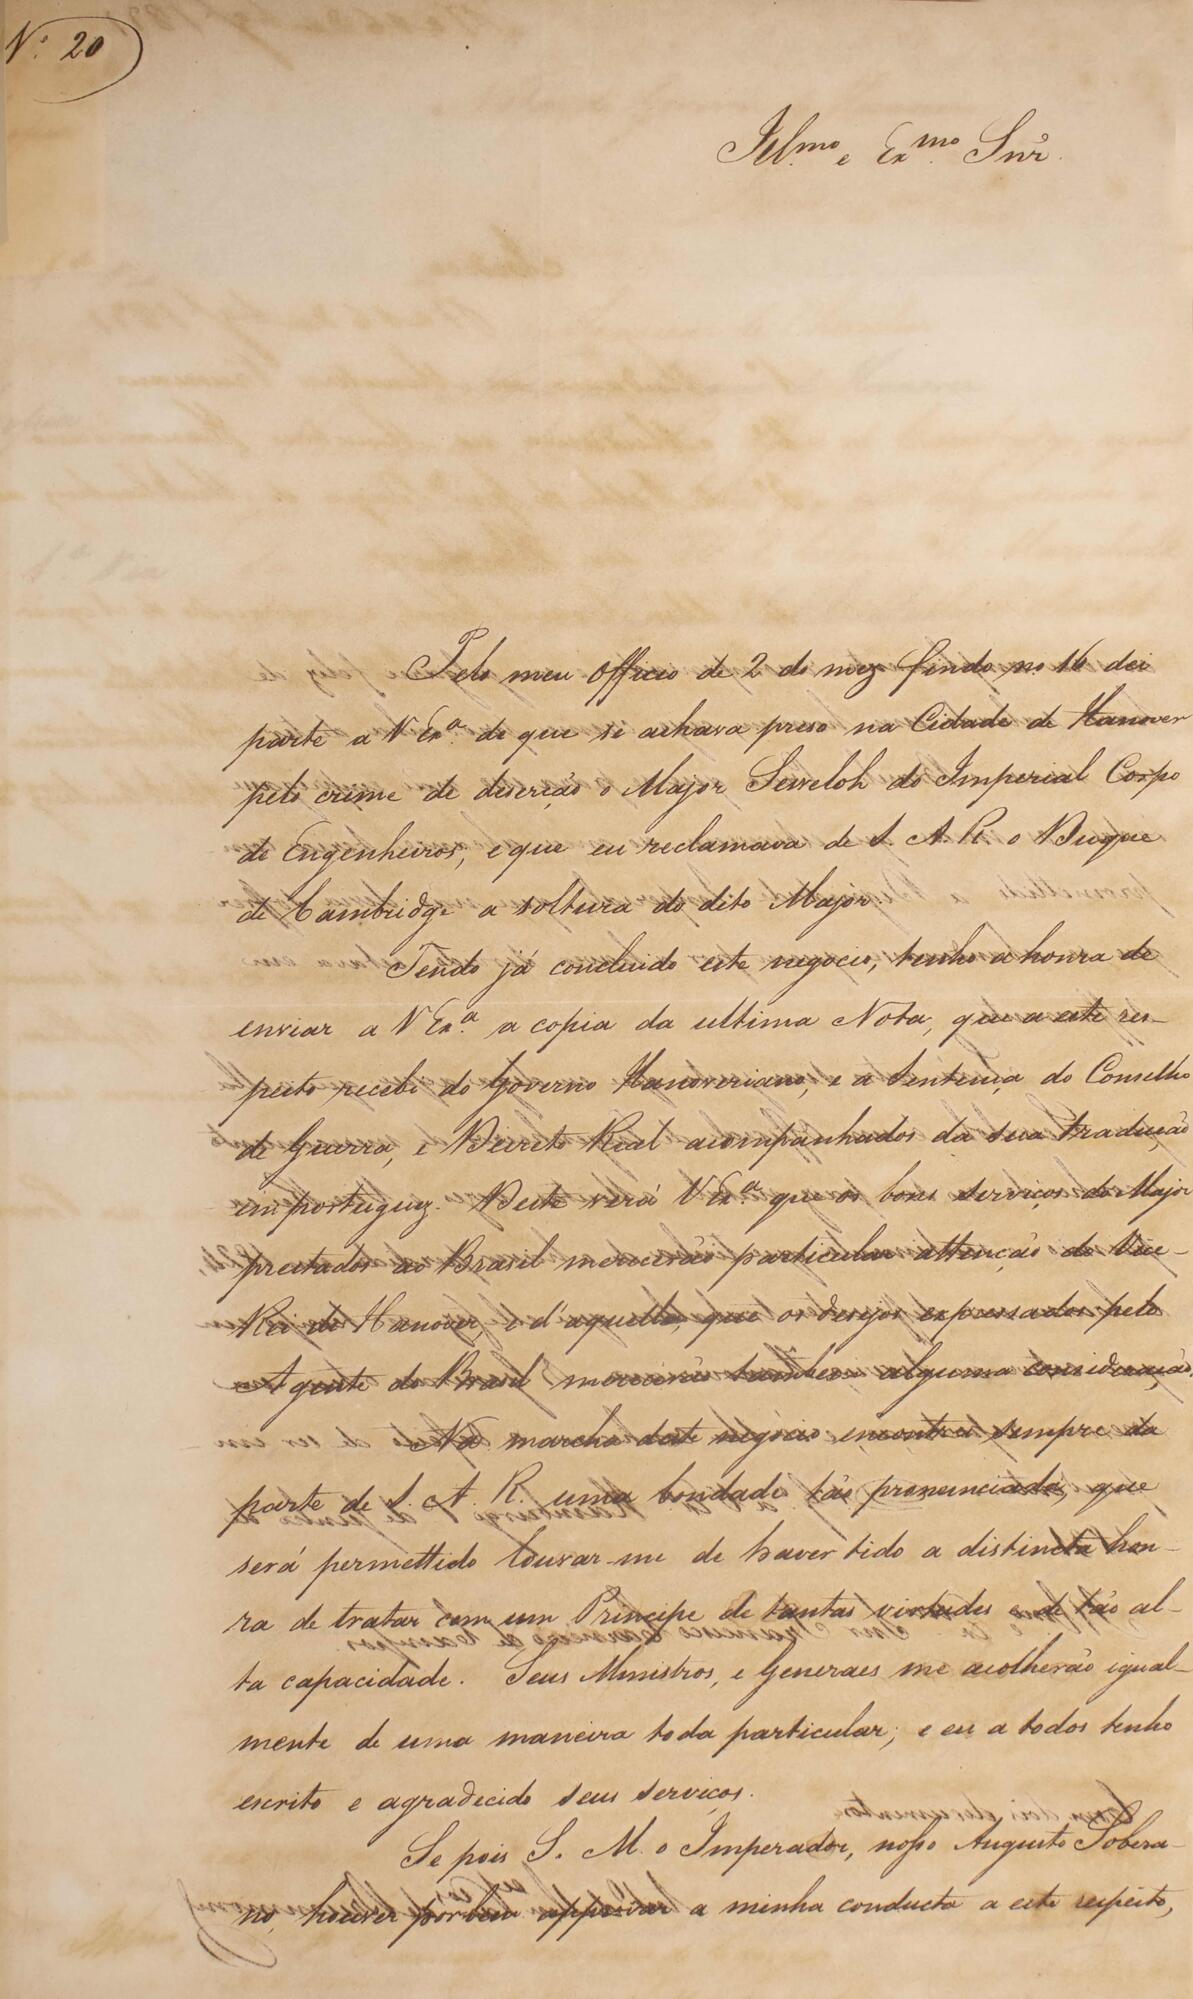 N.º 20
Illmo e Exmo Snr.
Pelo meu officio de 2 do mez findo no. 16 dei
parte a V Exa. de que se achava preso na Cidade de Hanover
pelo crime de deserção o Major Seweloh do Imperial Corpo
de Engenheiros, e que eu reclamava de S. A. R. o Duque
de Cambridge a soltura do dito Major.
Tendo já concluido este negocio, tenho a honra de
enviar a V Exa. a copia da ultima Nota, que a este res-
peito recebi do Governo Hanoveriano, e a Sentença do Conselho
de Guerra, e Decreto Real acompanhados da sua traducção
em portuguez. Deste verá V Exa. que os bons serviços do Major
prestados ao Brasil merecerão particular attenção do Vice-
Rei de Hanover, e d'aquella, que os desejos expressados pelo
Agente do Brasil merecerão tambem alguma consideração.
Na marcha deste negocio encontrei sempre da
parte de S. A. R. uma bondade tão pronunciada, que
será permettido louvar-me de haver tido a distincta hon-
ra de tratar com um Principe de tantas virtudes e de tão al-
ta capacidade. Seus Ministros, e Generaes me acolherão igual-
mente de uma maneira toda particular; e eu a todos tenho
escrito e agradecido seus serviços.
Se pois S. M. o Imperador, nosso Augusto Sobera-
no, houver por bem approvar a minha conducta a este respeito,